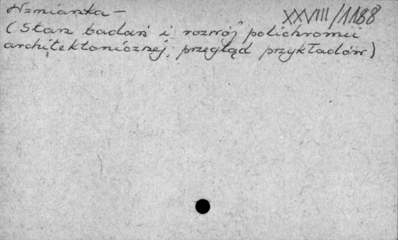 Wzmianka -
XXVIII/1188
(Stan badań i rozwój polichromii
architektonicznej, przegląd przykładów)